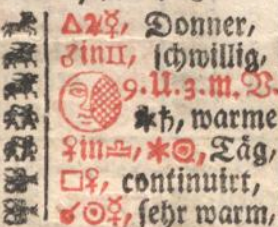 △♃☿, Donner,
♂in♊, schwillig,
9.U.3.m.V.
⚹♄, warme
♀in♎, ⚹☉, Täg,
□♀, continuirt,
☌☉☿, sehr warm,